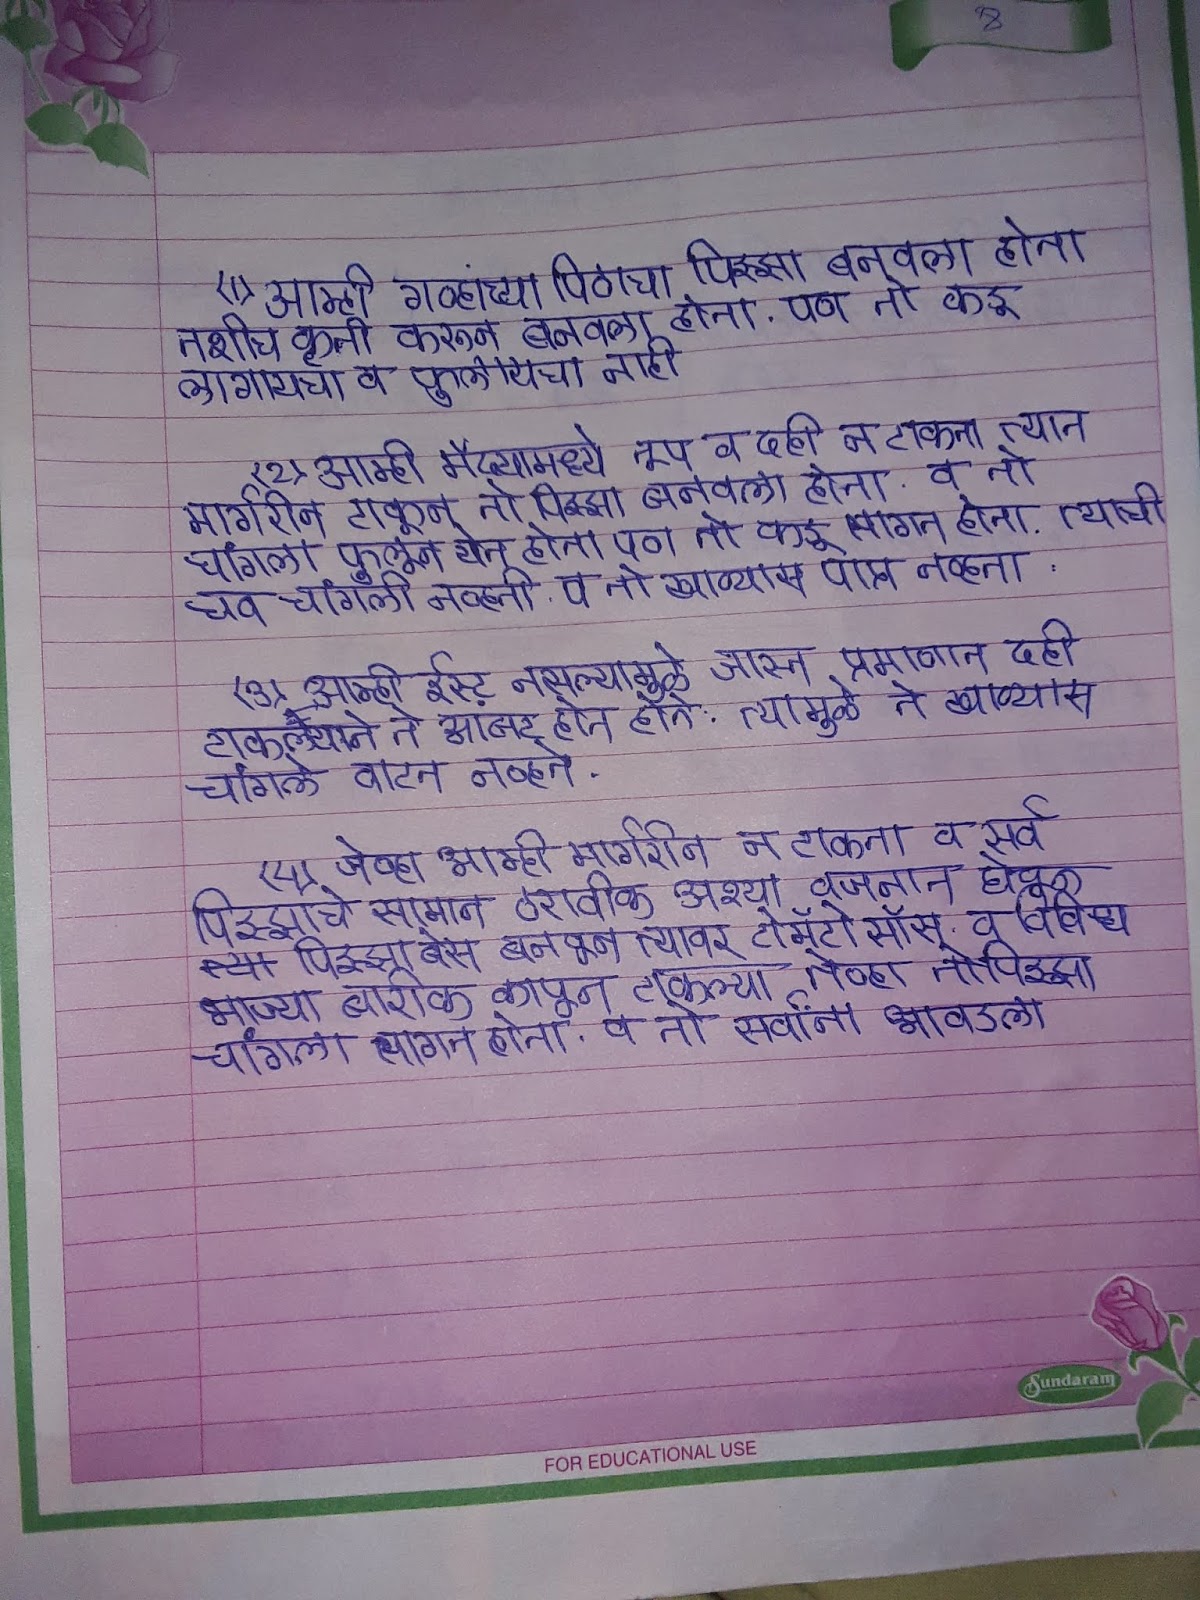 8
(1) आम्ही गव्हांच्या पिठाचा पिझ्झा बनवला होता
तशीच कृती करून बनवला होता. पण तो कडू
लागायचा व फुलायचा नाही
(2) आम्ही मैद्यामध्ये तूप व दही न टाकता त्यात
मार्गरीन टाकून तो पिझ्झा बनवला होता. व तो
चांगला फुलून येत होता पण तो कडू लागत होता. त्याची
चव चांगली नव्हती. व तो खाण्यास पात्र नव्हता.
(3) आम्ही ईस्ट नसल्यामुळे जास्त प्रमाणात दही
टाकल्याने ते आंबट होत होते. त्यामुळे ते खाण्यास
चांगले वाटत नव्हते.
(4) जेव्हा आम्ही मार्गरीन न टाकता व सर्व
पिझ्झाचे सामान ठरावीक अश्या वजनात घेवून
त्या पिझ्झा बेस बनवून त्यावर टोमॅटो सॉस. व विविध
भाज्या बारीक कापून टाकल्या तेव्हा तो पिझ्झा
चांगला लागत होता. व तो सर्वांना आवडला
Sundaram
FOR EDUCATIONAL USE